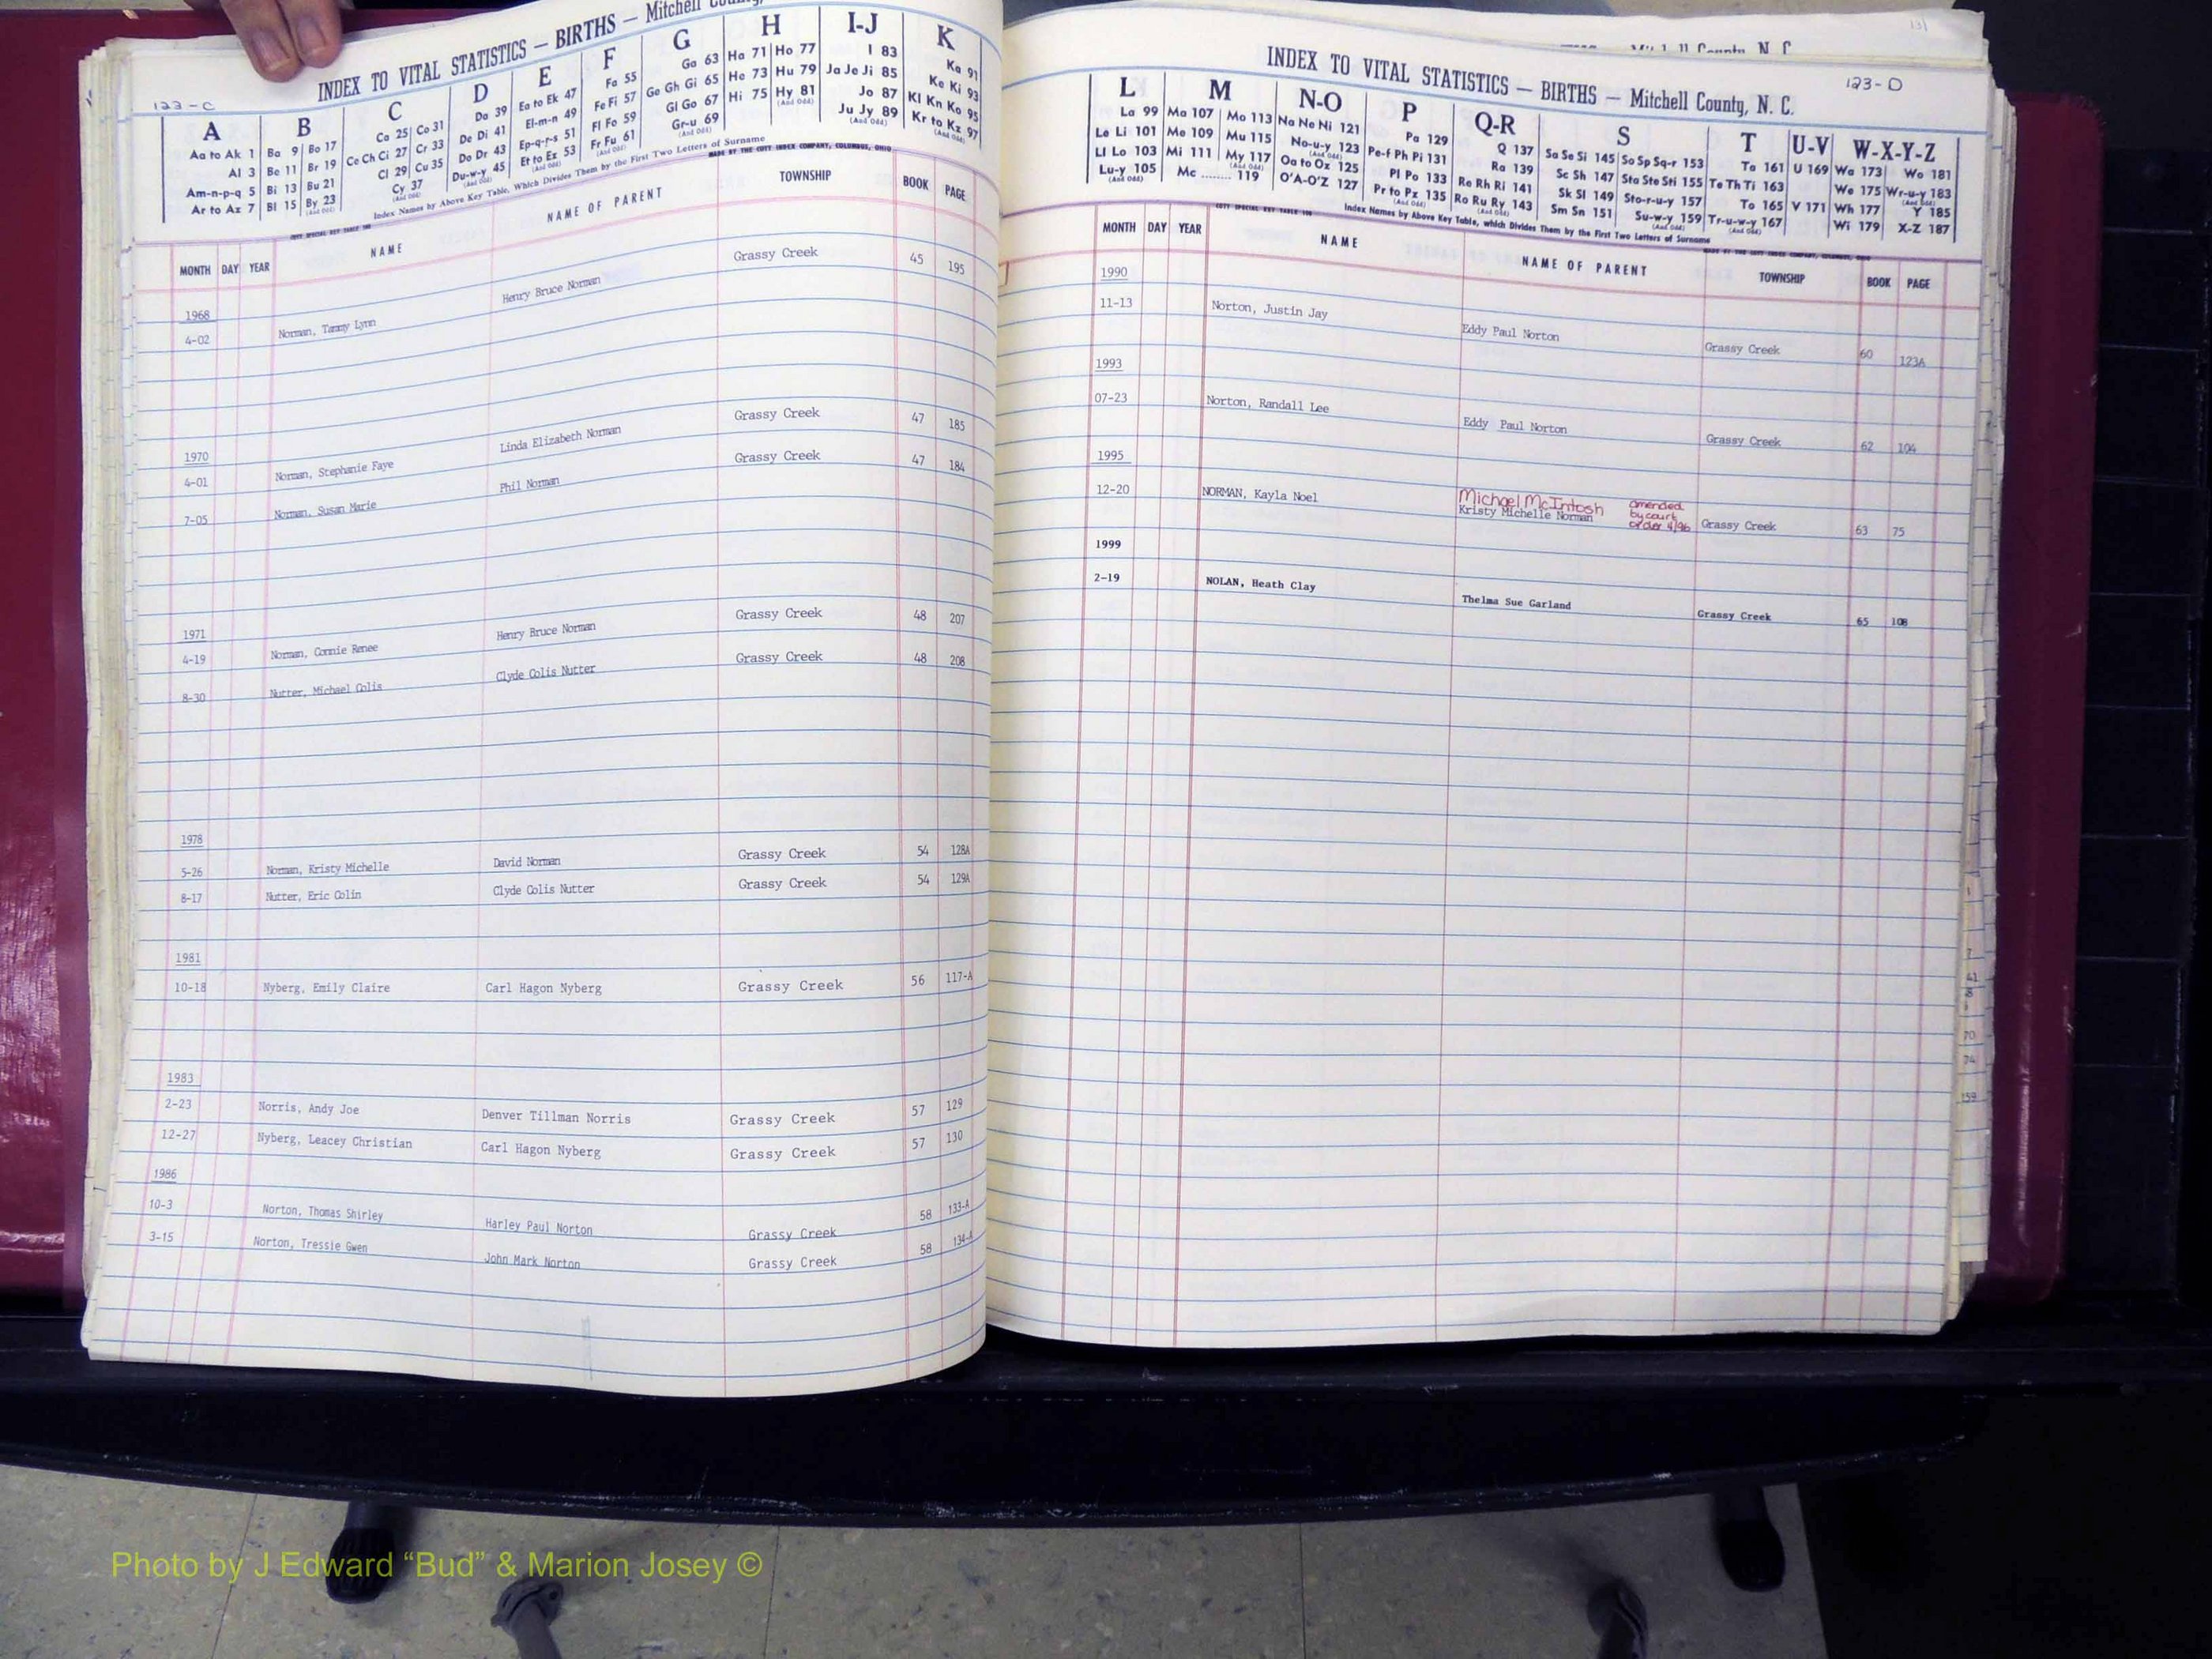 123-C
INDEX TO VITAL STATISTICS — BIRTHS — Mitchell County,
A B C D E F G H I-J K
Aa to Ak 1 Ba 9 Bo 17 Ca 25 Co 31 Da 39 Ea to Ek 47 Fa 55 Ga 63 Ha 71 Ho 77 I 83 Ka 91
Al 3 Be 11 Br 19 Ce Ch Ci 27 Cr 33 De Di 41 El-m-n 49 Fe Fi 57 Ge Gh Gi 65 He 73 Hu 79 Ja Je Ji 85 Ke Ki 93
Am-n-p-q 5 Bi 13 Bu 21 Cl 29 Cu 35 Do Dr 43 Ep-q-r-s 51 Fl Fo 59 Gl Go 67 Hi 75 Hy 81 (And Odd) Jo 87 Kl Kn Ko 95
Ar to Az 7 Bl 15 By 23 (And Odd) Cy 37 (And Odd) Du-w-y 45 (And Odd) Et to Ez 53 (And Odd) Fr Fu 61 (And Odd) Gr-u 69 (And Odd) Ju Jy 89 (And Odd) Kr to Kz 97 (And Odd)
Index Names by Above Key Table, Which Divides Them by the First Two Letters of Surname
MADE BY THE COTT INDEX COMPANY, COLUMBUS, OHIO
MONTH DAY YEAR NAME NAME OF PARENT TOWNSHIP BOOK PAGE
1968
4-02 Norman, Tammy Lynn Henry Bruce Norman Grassy Creek 45 195
1970
4-01 Norman, Stephanie Faye Linda Elizabeth Norman Grassy Creek 47 185
7-05 Norman, Susan Marie Phil Norman Grassy Creek 47 184
1971
4-19 Norman, Connie Renee Henry Bruce Norman Grassy Creek 48 207
8-30 Nutter, Michael Colis Clyde Colis Nutter Grassy Creek 48 208
1978
5-26 Norman, Kristy Michelle David Norman Grassy Creek 54 128A
8-17 Nutter, Eric Colin Clyde Colis Nutter Grassy Creek 54 129A
1981
10-18 Nyberg, Emily Claire Carl Hagon Nyberg Grassy Creek 56 117-A
1983
2-23 Norris, Andy Joe Denver Tillman Norris Grassy Creek 57 129
12-27 Nyberg, Leacey Christian Carl Hagon Nyberg Grassy Creek 57 130
1986
10-3 Norton, Thomas Shirley Harley Paul Norton Grassy Creek 58 133-A
3-15 Norton, Tressie Gwen John Mark Norton Grassy Creek 58 134-A
Mitchell County, N. C.
131
INDEX TO VITAL STATISTICS — BIRTHS — Mitchell County, N. C.
123-D
L M N-O P Q-R S T U-V W-X-Y-Z
La 99 Ma 107 Mo 113 Na Ne Ni 121 Pa 129 Q 137 Sa Se Si 145 So Sp Sq-r 153 Ta 161 U 169 Wa 173 Wo 181
Le Li 101 Me 109 Mu 115 No-u-y 123 (And Odd) Pe-f Ph Pi 131 Ra 139 Sc Sh 147 Sta Ste Sti 155 Te Th Ti 163 We 175 Wr-u-y 183 (And Odd)
Ll Lo 103 Mi 111 My 117 (And Odd) Oa to Oz 125 Pl Po 133 Re Rh Ri 141 Sk Sl 149 Sto-r-u-y 157 To 165 V 171 Wh 177 Y 185
Lu-y 105 (And Odd) Mc ........ 119 O'A-O'Z 127 Pr to Pz 135 (And Odd) Ro Ru Ry 143 (And Odd) Sm Sn 151 Su-w-y 159 (And Odd) Tr-u-w-y 167 (And Odd) Wi 179 X-Z 187
Index Names by Above Key Table, which Divides Them by the First Two Letters of Surname
MONTH DAY YEAR NAME NAME OF PARENT TOWNSHIP BOOK PAGE
1990
11-13 Norton, Justin Jay Eddy Paul Norton Grassy Creek 60 123A
1993
07-23 Norton, Randall Lee Eddy Paul Norton Grassy Creek 62 104
1995
Michael McIntosh amended by court order 4/96
12-20 NORMAN, Kayla Noel Kristy Michelle Norman Grassy Creek 63 75
1999
2-19 NOLAN, Heath Clay Thelma Sue Garland Grassy Creek 65 108
Photo by J Edward “Bud” & Marion Josey ©